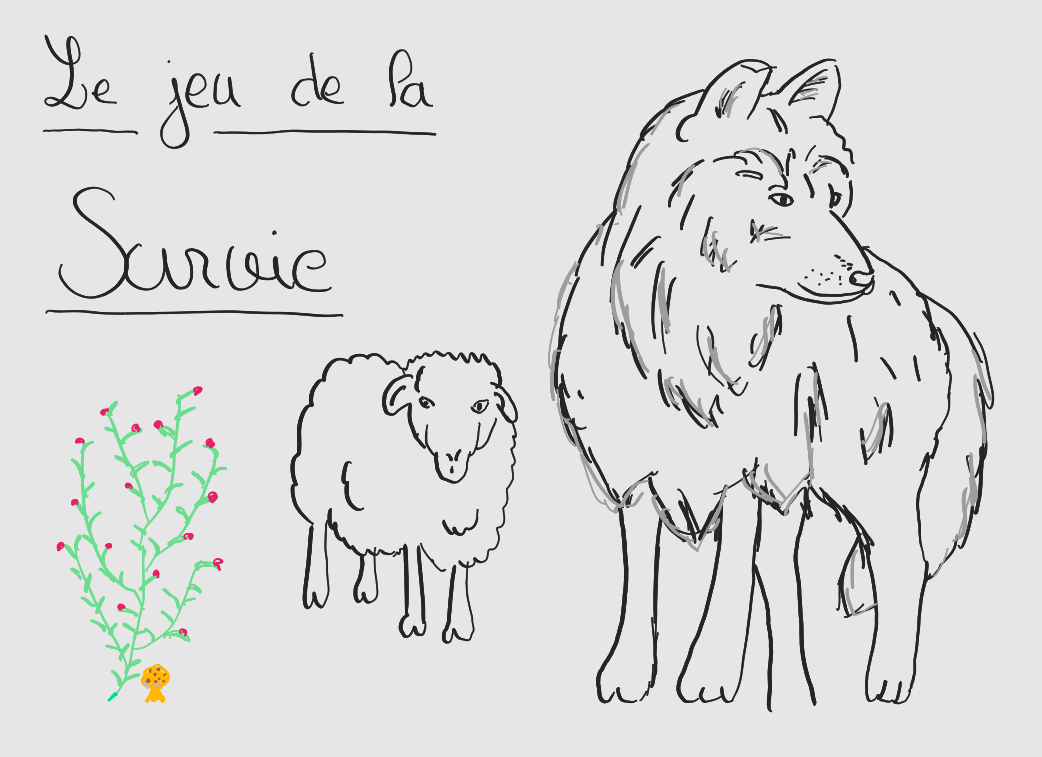 Le jeu de la
Survie